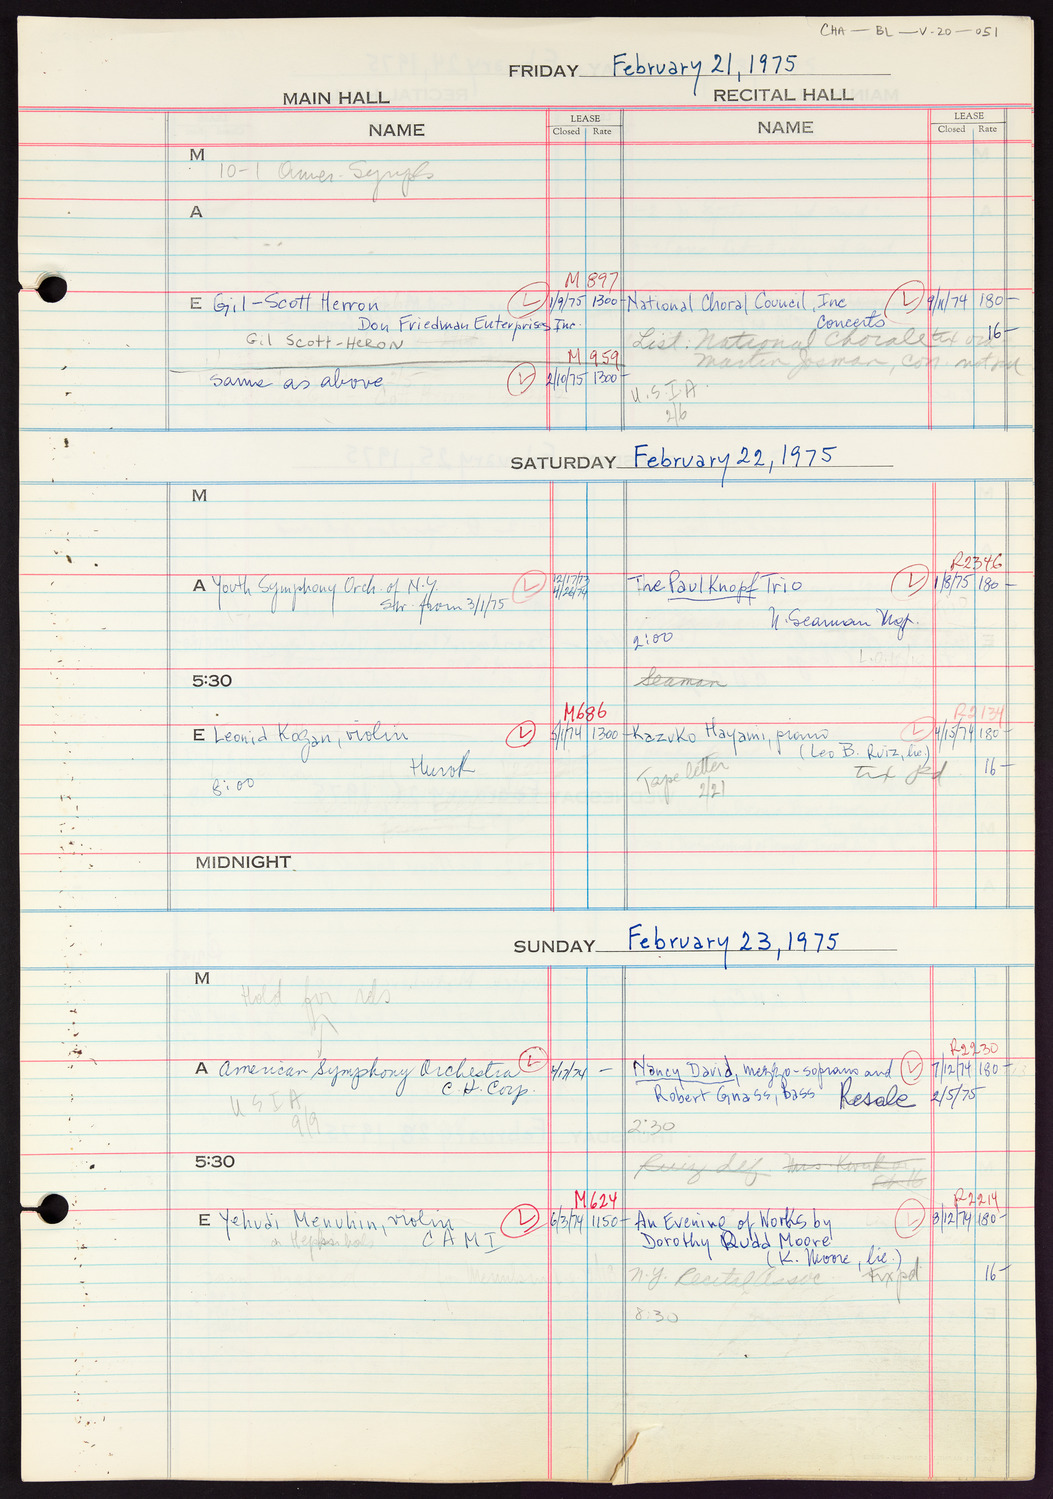 CHA — BL — V-20 — 051
FRIDAY February 21, 1975
MAIN HALL RECITAL HALL
NAME LEASE Closed Rate NAME LEASE Closed Rate
M
10-1 Amer. Symph
A
M 897
E Gil-Scott Herron L 1/9/75 1300- National Choral Council, Inc L 9/11/74 180-
Don Friedman Enterprises Inc. Concerts
Gil Scott-Heron List: National Chorale 16-
M 959 Martin Josman, con.
same as above L 2/10/75 1300- U.S.I.A.
2/6
SATURDAY February 22, 1975
M
R2346
A Youth Symphony Orch. of N.Y. L 12/17/73 The Paul Knopf Trio L 1/8/75 180-
from 3/1/75 4/26/74
N. Seaman Mgt.
2:00
5:30 Seaman
M686 R2134
E Leonid Kogan, violin L 5/1/74 1300- Kazuko Hayami, piano L 4/15/74 180-
Hurok (Leo B. Ruiz, lic.)
8:00 Tape letter 2/21 16-
MIDNIGHT
SUNDAY February 23, 1975
M
Hold for rds
R2230
A American Symphony Orchestra L 4/17/74 - Nancy David, mezzo-soprano and L 7/12/74 180-
C.H. Corp. Robert Gnass, bass Resale 2/5/75
U S I A
9/9 2:30
5:30
M624 R2214
E Yehudi Menuhin, violin L 6/3/74 1150- An Evening of Works by L 8/12/74 180-
C A M I Dorothy Rudd Moore
(K. Moore, lic.)
N.Y. Recital Assoc. txx pd. 16-
8:30